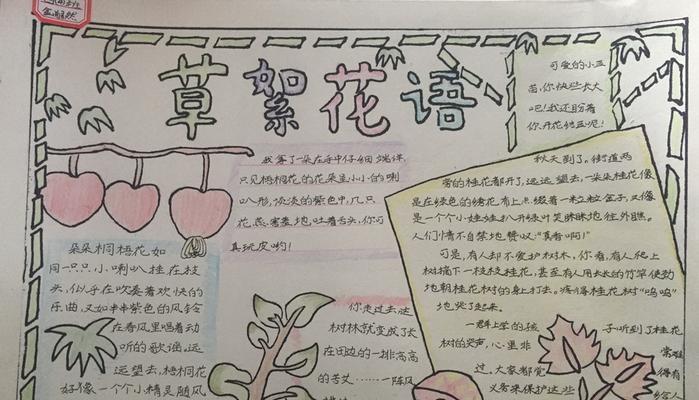 草絮花语
可爱的小豆
苗,你快些长大
吧!我还盼着
你开花结豆呢!
我拿了一朵在手中仔细端详,
只见梧桐花的花朵呈小小的喇
叭形,淡淡的紫色中,几只
花蕊害羞地吐着舌头,你可
真玩皮哟!
秋天到了。街道两
旁的桂花都开了,远远望去,一朵朵桂花像
是在绿色的绣花布上点缀着一粒粒金子,又像
是一个个小娃娃扒开绿叶笑眯眯地往外瞧。
人们情不自禁地赞叹:“真香啊!”
可是,有人却不爱护树木,你看,有人爬上
树摘下一枝枝桂花,甚至有人用长长的竹竿使劲
地朝桂花树的身上打去。疼得桂花树“呜呜”
地哭了起来。
一群上学的孩子听到了桂花
树的哭声,心里非常难
过。大家都得有
义务来保护这些
朵朵桐梧花如
同一只只小喇叭挂在枝
头,似乎在吹奏着欢快的
乐曲,又如串串紫色的风铃
在春风里唱着动
听的歌谣。远
远望去,梧桐花
好像一个个小精灵随风
你走过去,这
树林就变成了长
在田边的一排高高
的苦丈……一阵风